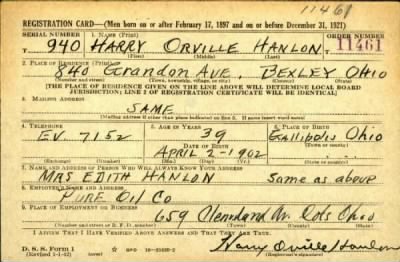 11461
REGISTRATION CARD—(Men born on or after February 17, 1897 and on or before December 31, 1921)
SERIAL NUMBER 1. NAME (Print) ORDER NUMBER
940 HARRY ORVILLE HANLON 11461
(First) (Middle) (Last)
2. PLACE OF RESIDENCE (Print)
840 Grandon Ave. Bexley Ohio
(Number and street) (Town, township, village, or city) (County) (State)
[THE PLACE OF RESIDENCE GIVEN ON THE LINE ABOVE WILL DETERMINE LOCAL BOARD
JURISDICTION; LINE 2 OF REGISTRATION CERTIFICATE WILL BE IDENTICAL]
3. MAILING ADDRESS
SAME
(Mailing address if other than place indicated on line 2. If same insert word same)
4. TELEPHONE 5. AGE IN YEARS 6. PLACE OF BIRTH
EV. 7152 39 Gallipolis Ohio
DATE OF BIRTH
APRIL 2-1902
(Exchange) (Number) (Mo.) (Day) (Yr.) (State or country)
7. NAME AND ADDRESS OF PERSON WHO WILL ALWAYS KNOW YOUR ADDRESS
MRS EDITH HANLON Same as above
8. EMPLOYER'S NAME AND ADDRESS
PURE OIL CO
9. PLACE OF EMPLOYMENT OR BUSINESS
659 Cols Ohio
(Number and street or R. F. D. number) (Town) (County) (State)
I AFFIRM THAT I HAVE VERIFIED ABOVE ANSWERS AND THAT THEY ARE TRUE.
D. S. S. Form 1
(Revised 1-1-42) GPO
Harry Orville Hanlon
(Registrant's signature)